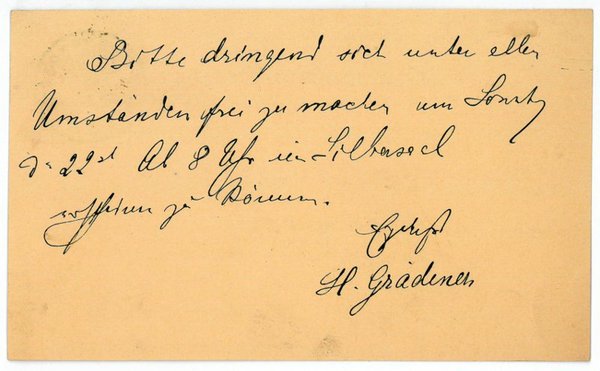 Bitte dringend sich unter allen
Umständen frei zu machen um Sonntg
d. 22st Ab 8 Uhr im Silbersaal
erscheinen zu können.
H. Grädener